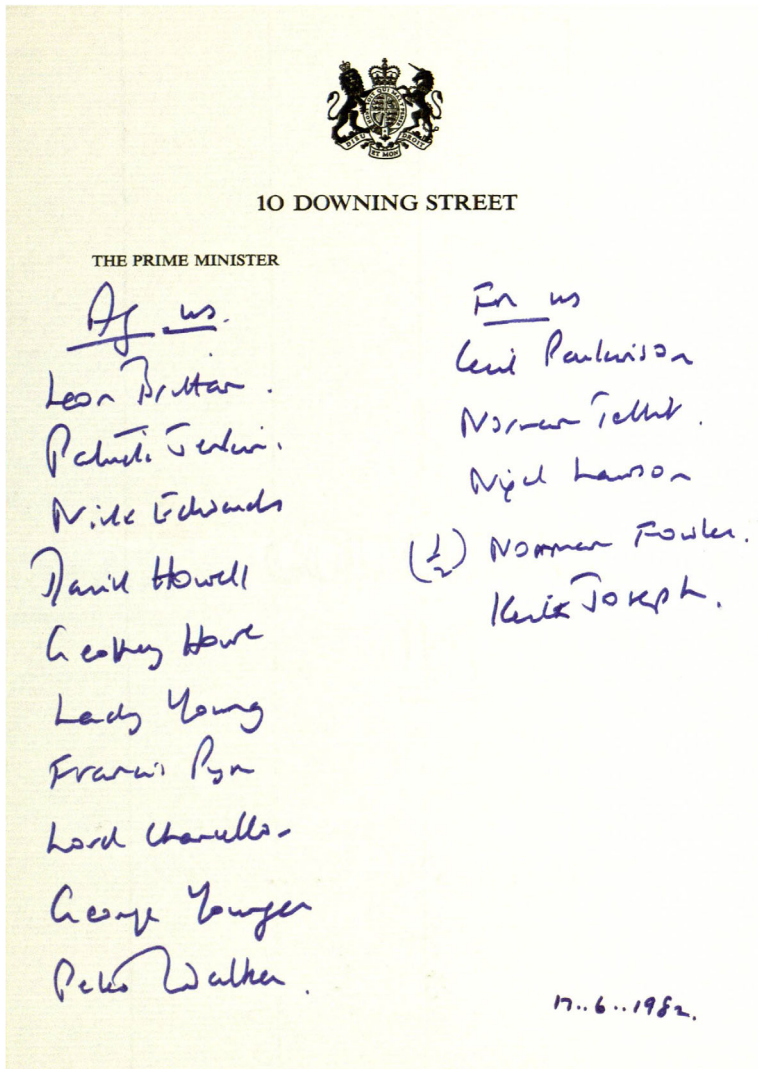 HONI SOIT QUI MAL Y PENSE
DIEU ET MON DROIT
10 DOWNING STREET
THE PRIME MINISTER
Ag us.
Leon Brittan.
Patrick Jenkin.
Nick Edwards
David Howell
Geoffrey Howe
Lady Young
Francis Pym
Lord Chancellor
George Younger
Peter Walker.
For us
Cecil Parkinson
Norman Tebbit.
Nigel Lawson
(½) Norman Fowler.
Keith Joseph.
17..6..1982.